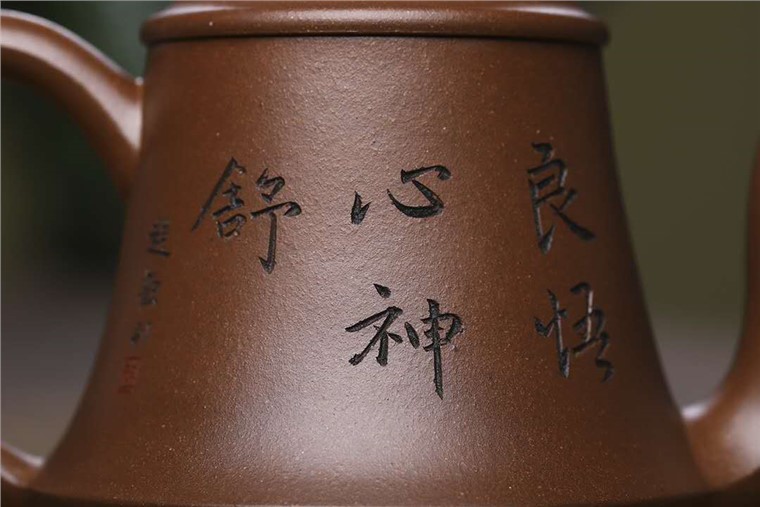 良悟
心神
舒